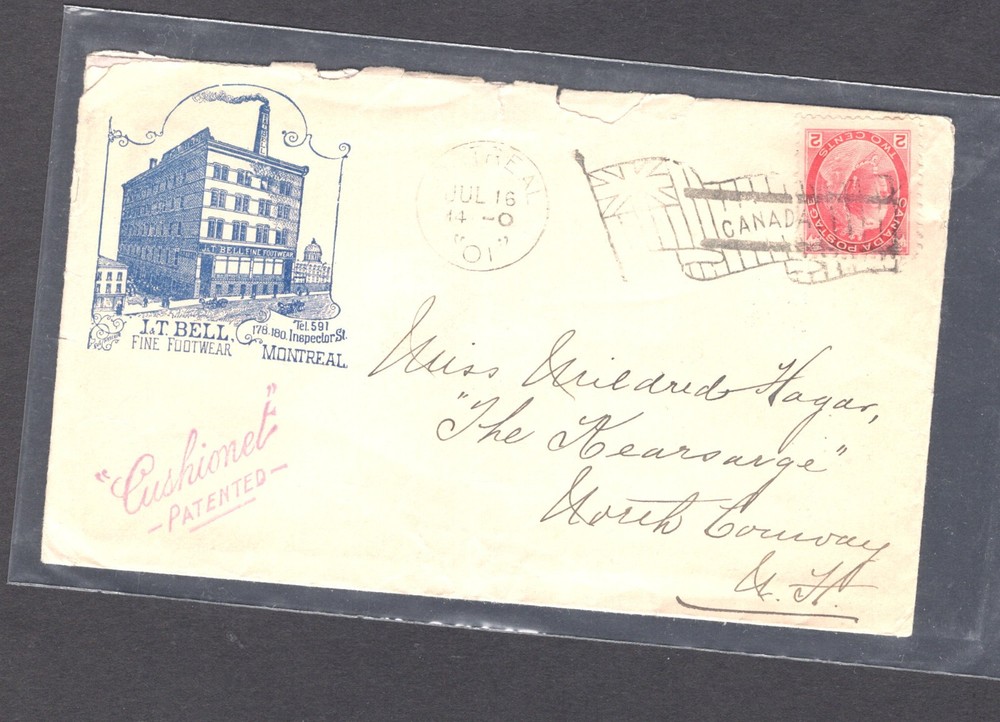 J.&T. BELL FINE FOOTWEAR
J.&T. BELL,
FINE FOOTWEAR
Tel. 591
178.180. Inspector St.
MONTREAL
"Cushionet"
— PATENTED —
REAL
JUL 16
14 - 0
"01"
CANADA
2 2
TWO CENTS
CANADA POSTAGE
Miss Mildred Hagar,
"The Kearsarge"
North Conway
N. H.